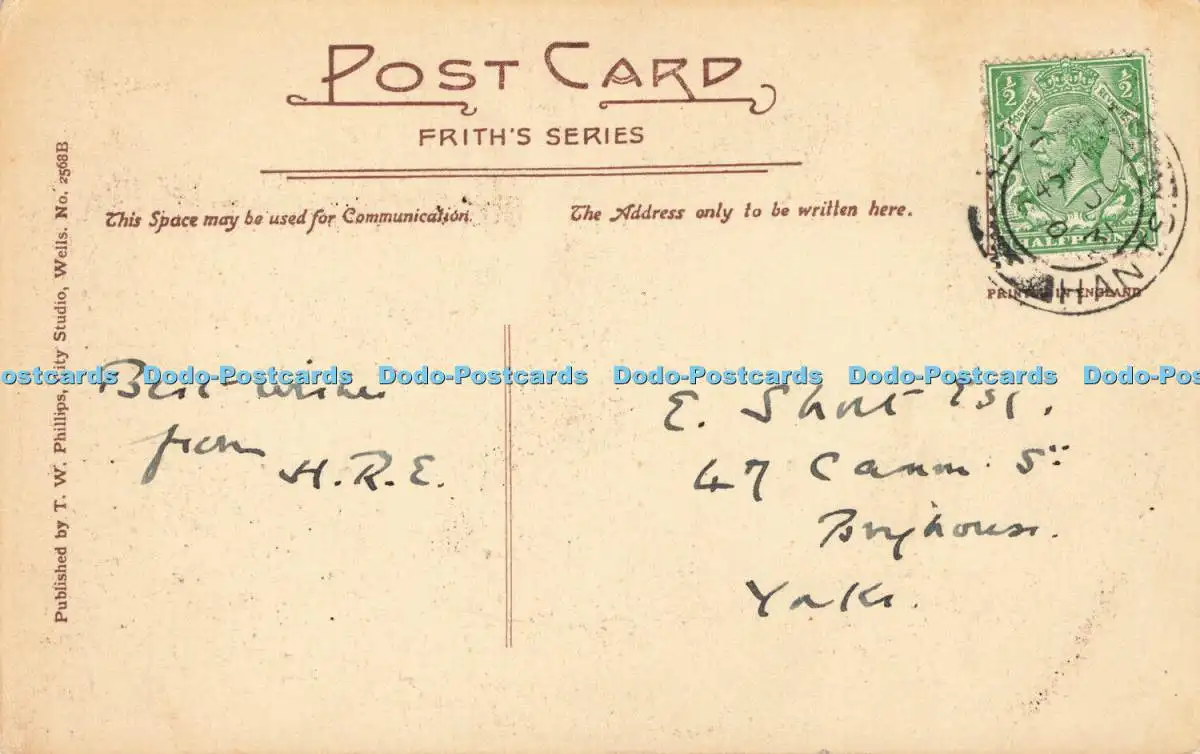 POST CARD
FRITH'S SERIES
This Space may be used for Communication.
The Address only to be written here.
½ ½
HALFPENNY
HANTS
PRINTED IN ENGLAND
Published by T. W. Phillips, City Studio, Wells. No. 2568B
Best wishes
from
H.R.E.
E. Short Esq.
47 Camm St
Brighouse.
Yorks.
Dodo-Postcards Dodo-Postcards Dodo-Postcards Dodo-Postcards